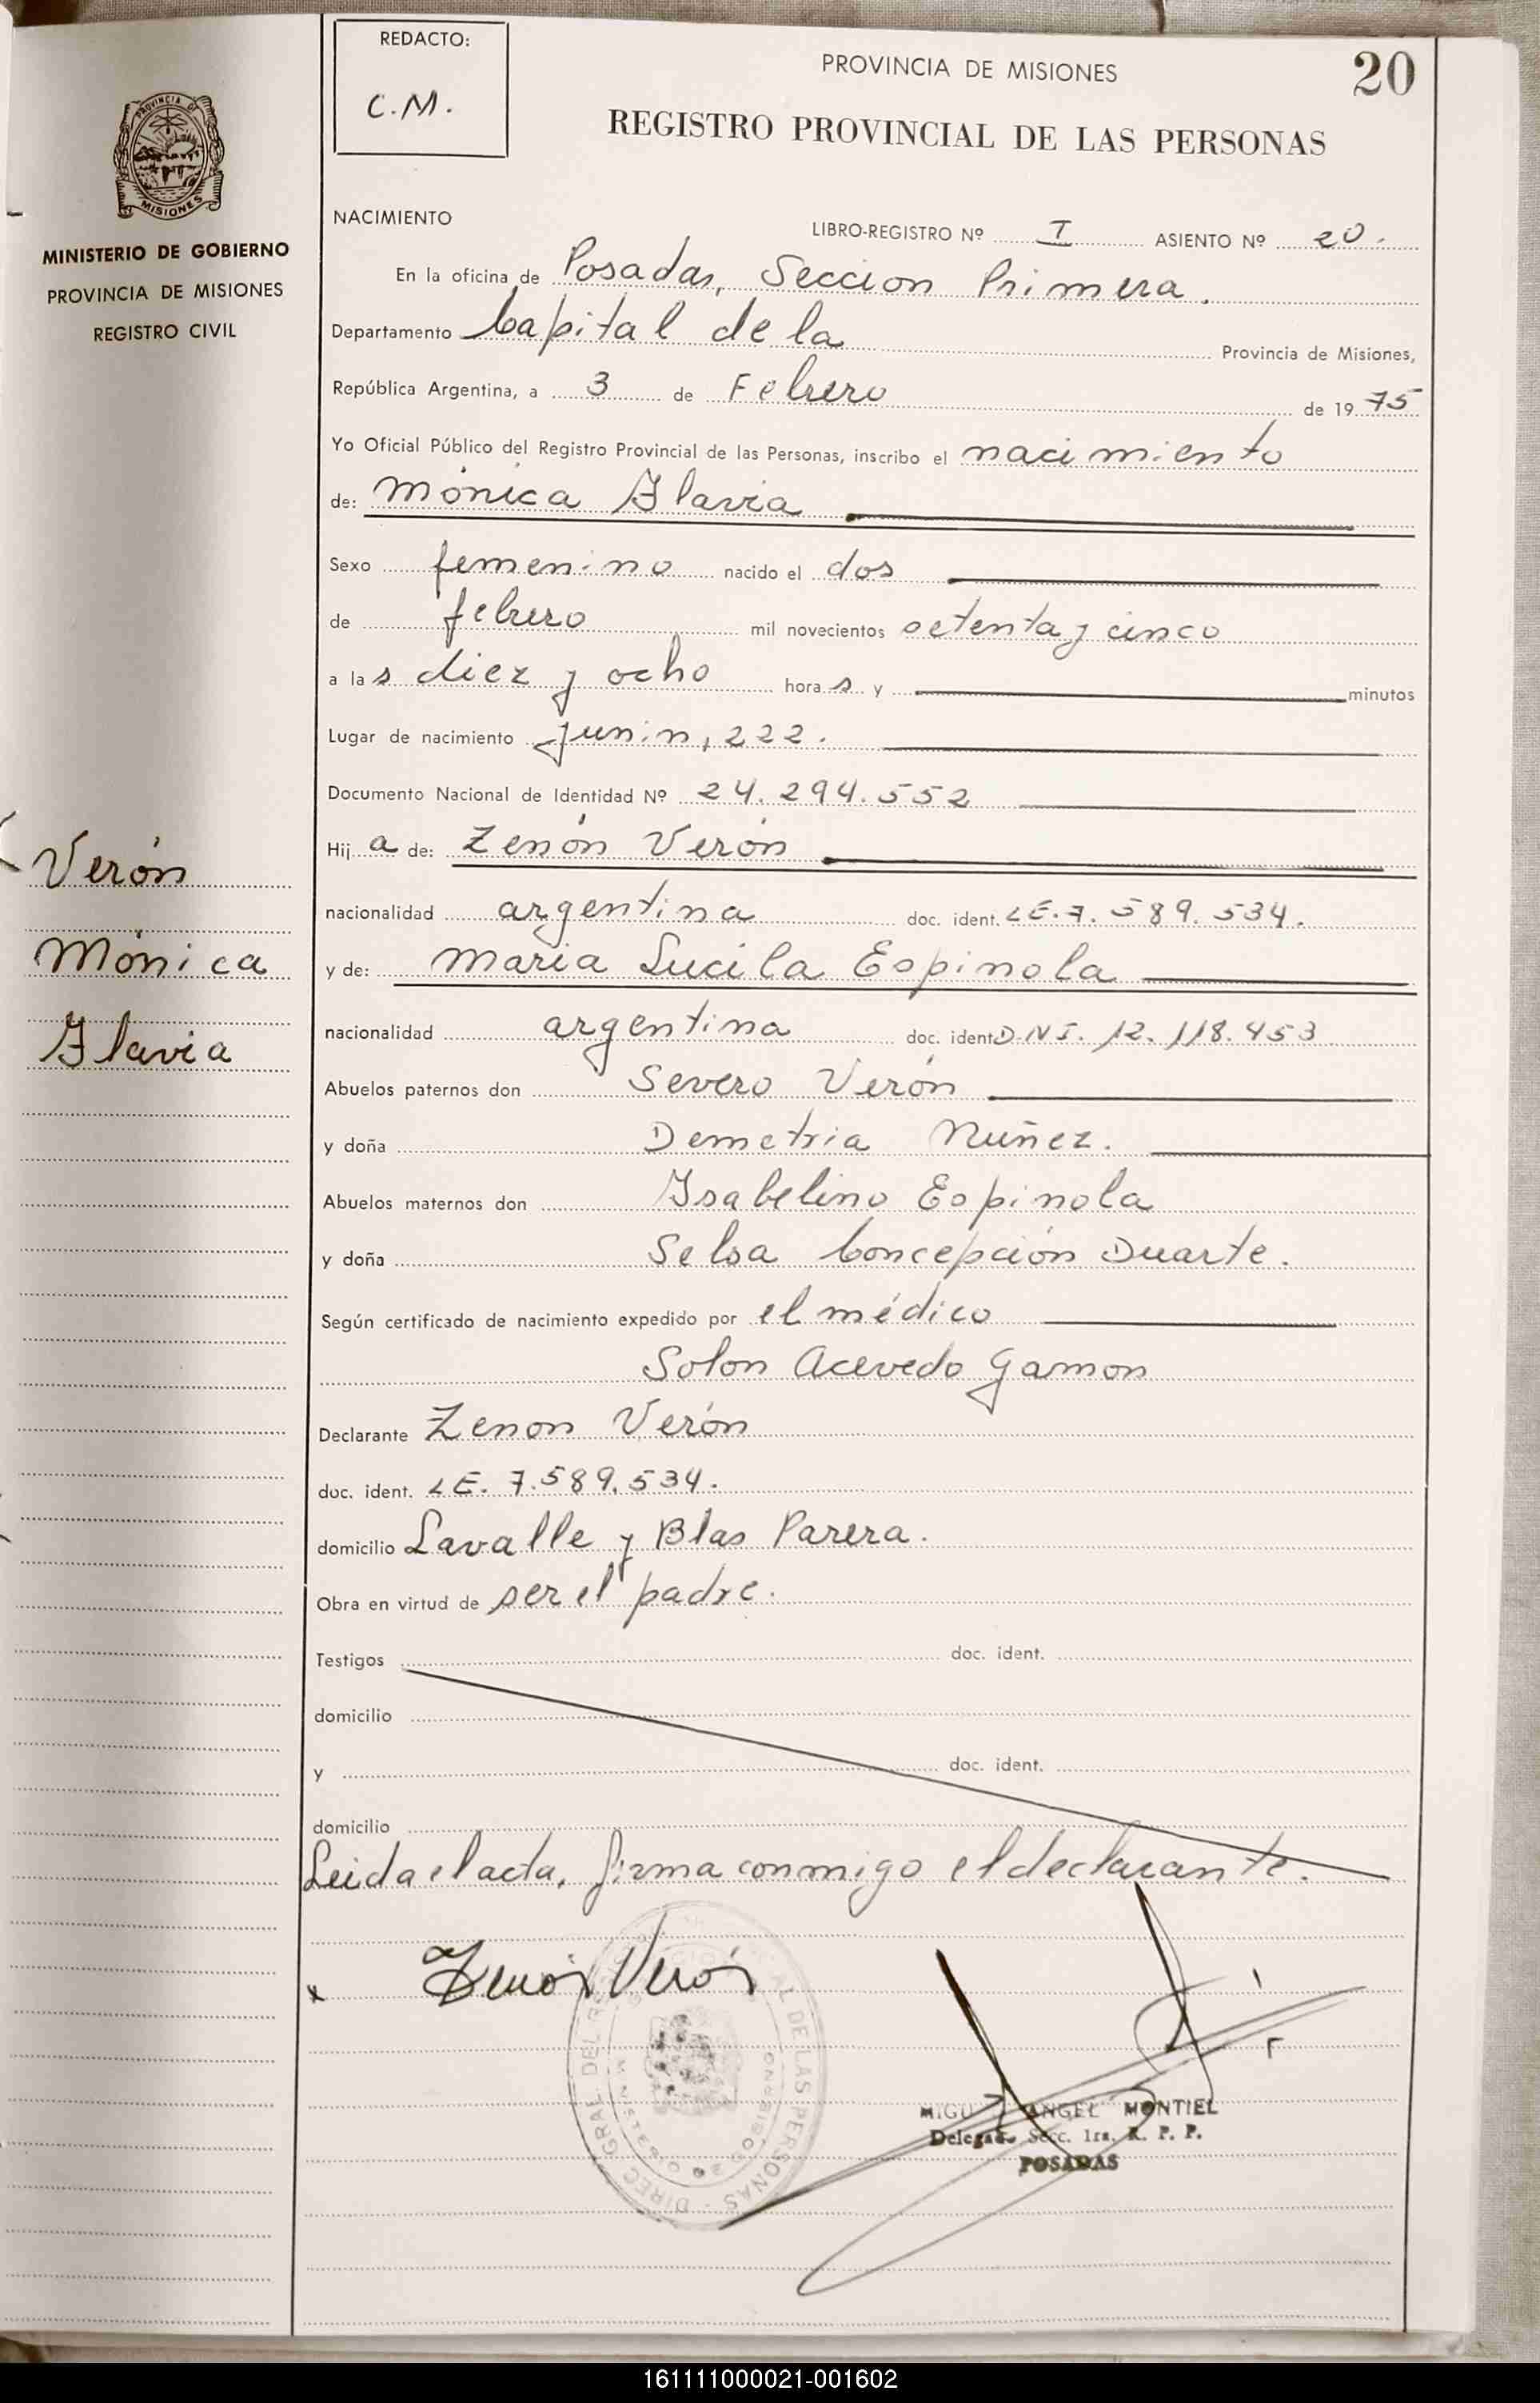 REDACTO:
C.M.
PROVINCIA DE MISIONES
20
REGISTRO PROVINCIAL DE LAS PERSONAS
PROVINCIA DE
MISIONES
MINISTERIO DE GOBIERNO
PROVINCIA DE MISIONES
REGISTRO CIVIL
NACIMIENTO
LIBRO-REGISTRO Nº I ASIENTO Nº 20.
En la oficina de Posadas, Seccion Primera.
Departamento Capital de la Provincia de Misiones,
República Argentina, a 3 de Febrero de 1975
Yo Oficial Público del Registro Provincial de las Personas, inscribo el nacimiento
de: Mónica Flavia
Sexo femenino nacido el dos
de febrero mil novecientos setenta y cinco
a las diez y ocho horas y minutos
Lugar de nacimiento Junin, 222.
Documento Nacional de Identidad Nº 24.294.552
Hija de: Zenón Verón
nacionalidad argentina doc. ident. LE. 7.589.534.
y de: Maria Lucila Espinola
nacionalidad argentina doc. ident D.N.I. 12.118.453
Abuelos paternos don Severo Verón
y doña Demetria Nuñez.
Abuelos maternos don Isabelino Espinola
y doña Selsa Concepción Duarte.
Según certificado de nacimiento expedido por el médico
Solon Acevedo Gamon
Declarante Zenon Verón
doc. ident. LE. 7.589.534.
domicilio Lavalle y Blas Parera.
Obra en virtud de ser el padre.
Testigos doc. ident.
domicilio
y doc. ident.
domicilio
Leida el acta, firma conmigo el declarante.
Verón
Mónica
Flavia
x Zenón Verón
DIREC. GRAL. DEL DE LAS PERSONAS
MIGUEL ANGEL MONTIEL
Delegado Secc. 1ra. R. P. P.
POSADAS
161111000021-001602